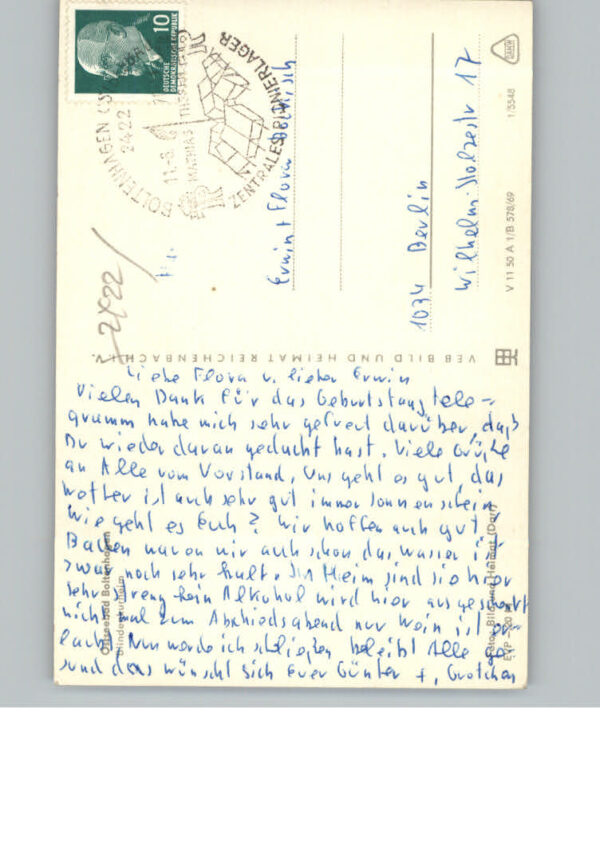 10
DEUTSCHE
DEMOKRATISCHE REPUBLIK
BOLTENHAGEN
2422
11.-8.
ZENTRALES PIONIERLAGER
"MATHIAS THESEN"
2422
Erwin + Flora
1034 Berlin
Wilhelm-Stolzestr 17
V 11 50 A 1/B 578/69
1/5548
VEB BILD UND HEIMAT REICHENBACH I. V.
Liebe Flora u. lieber Erwin
Vielen Dank für das Geburtstagstele-
gramm habe mich sehr gefreut darüber, daß
Du wieder daran gedacht hast. Viele Grüße
an Alle vom Vorstand, Uns geht es gut, das
Wetter ist auch sehr gut immer Sonnenschein
Wie geht es Euch? Wir hoffen auch gut
Baden waren wir auch schon das Wasser ist
zwar noch sehr kalt. Im Heim sind sie hier
sehr streng kein Alkohol wird hier ausgeschenkt
nicht mal zum Abschiedsabend nur Wein ist er-
laubt. Nun werde ich schließen bleibt Alle ge-
sund das wünscht sich Euer Günter +, Gretchen
Ostseebad Boltenhagen
Blindenkurheim
Foto: Bild und Heimat (Darr)